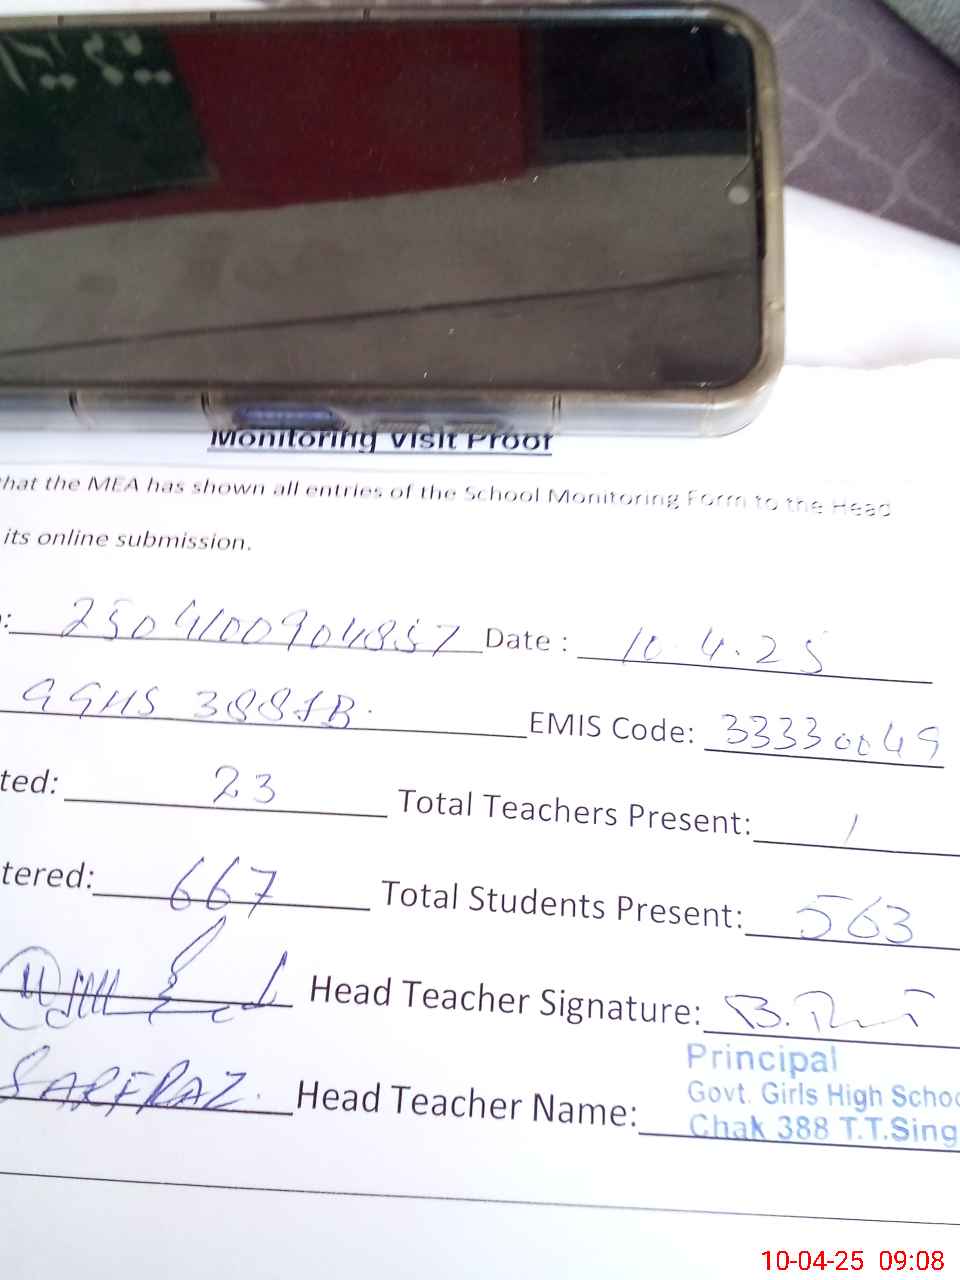 Monitoring Visit Proof
that the MEA has shown all entries of the School Monitoring Form to the Head
its online submission.
: 2504100904857 Date : 10.4.25
GGHS 388JB. EMIS Code: 33330049
ted: 23 Total Teachers Present: 1
tered: 667 Total Students Present: 563
Head Teacher Signature:
SARFRAZ. Head Teacher Name:
Principal
Govt. Girls High Schoo
Chak 388 T.T.Sing
10-04-25 09:08